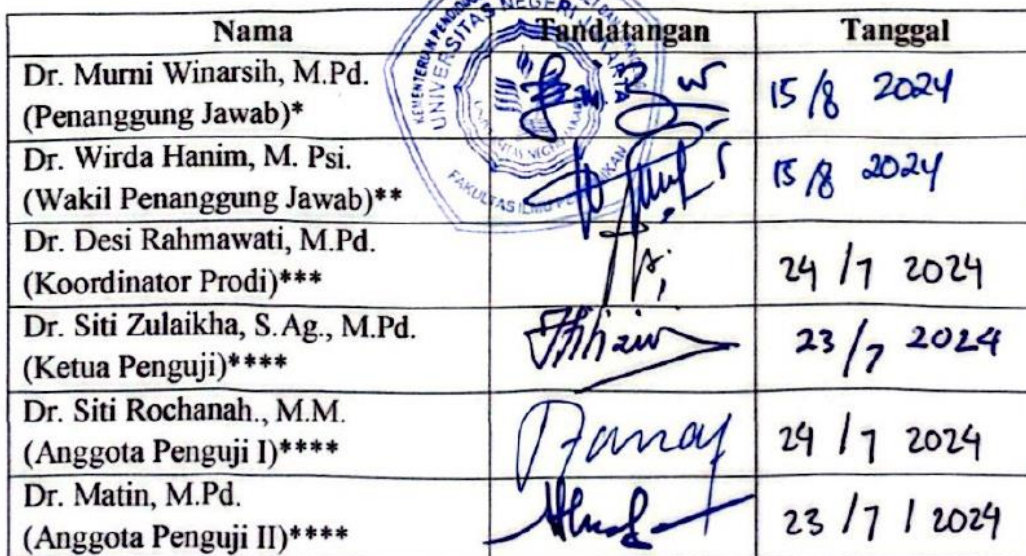 Nama Tandatangan Tanggal
Dr. Murni Winarsih, M.Pd.
(Penanggung Jawab)*
15/8 2024
Dr. Wirda Hanim, M. Psi.
(Wakil Penanggung Jawab)**
15/8 2024
Dr. Desi Rahmawati, M.Pd.
(Koordinator Prodi)***
24/7 2024
Dr. Siti Zulaikha, S.Ag., M.Pd.
(Ketua Penguji)****
23/7 2024
Dr. Siti Rochanah., M.M.
(Anggota Penguji I)****
24/7 2024
Dr. Matin, M.Pd.
(Anggota Penguji II)****
23/7/2024
UNIVERSITAS NEGERI JAKARTA
FAKULTAS ILMU